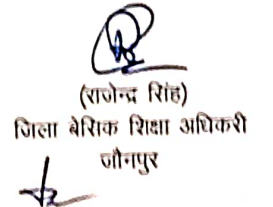 (राजेन्द्र सिंह)
जिला बेसिक शिक्षा अधिकरी
जौनपुर